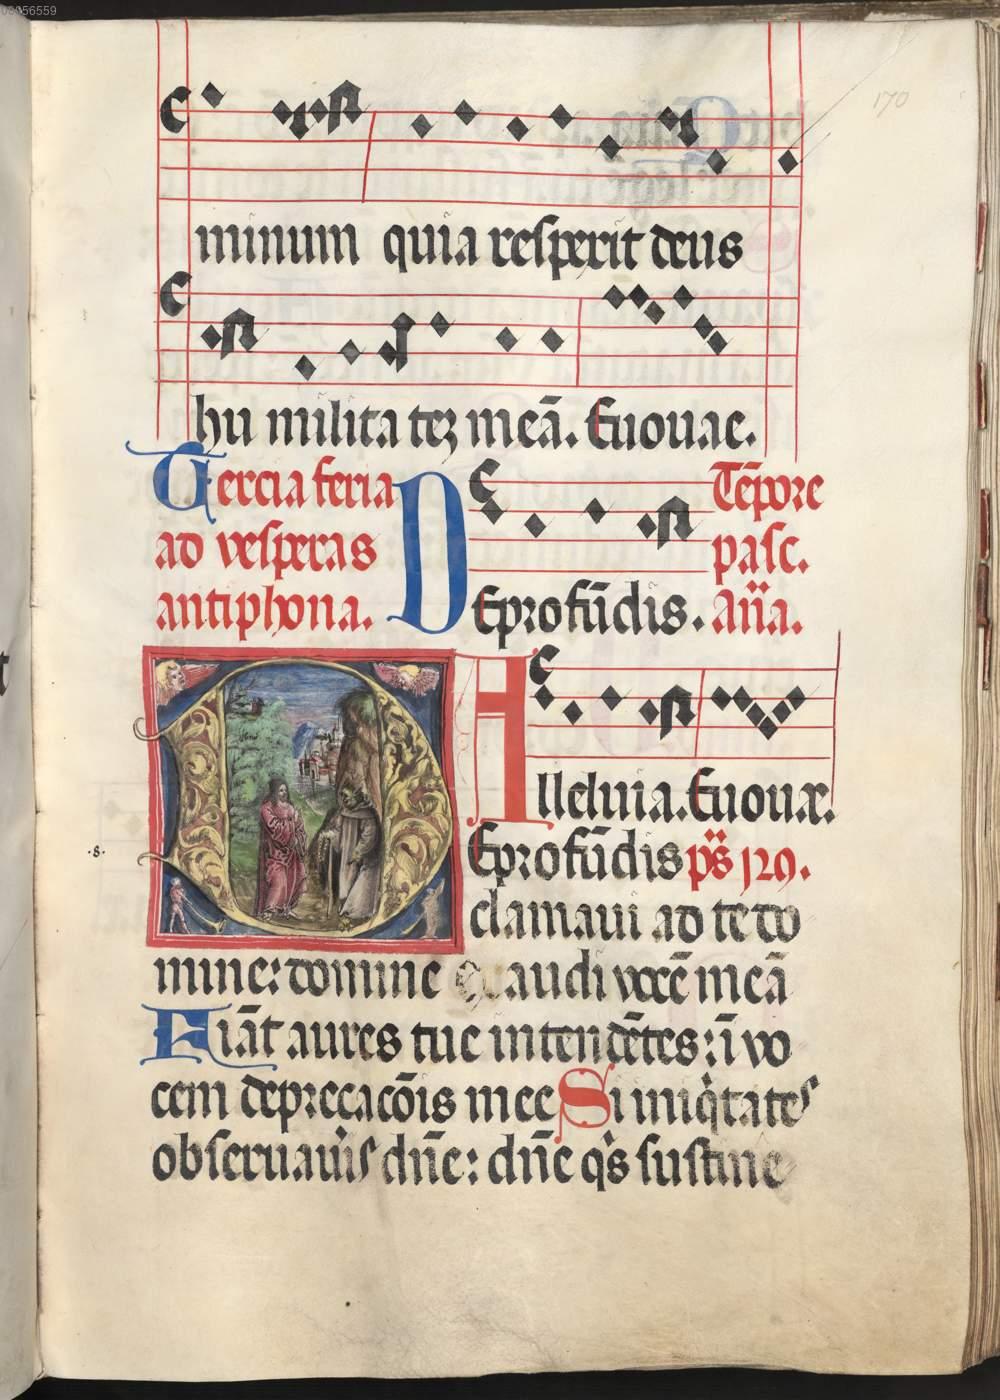 170
minum quia resperit deus
hu milita teꝫ meā. Euouae.
Tercia feria
ad vesperas
antiphona.
De profūdis.
Tēpore
pasc.
Aña.
Alleluia. Euouae.
De profūdis ps 129.
clamaui ad te do
mine: domine exaudi vocē meā
Fiāt aures tue intendētes: ī vo
cem deprecacōis mee Si iniqͥtates
obseruaueris dñe: dñe qͥs sustine
.8.